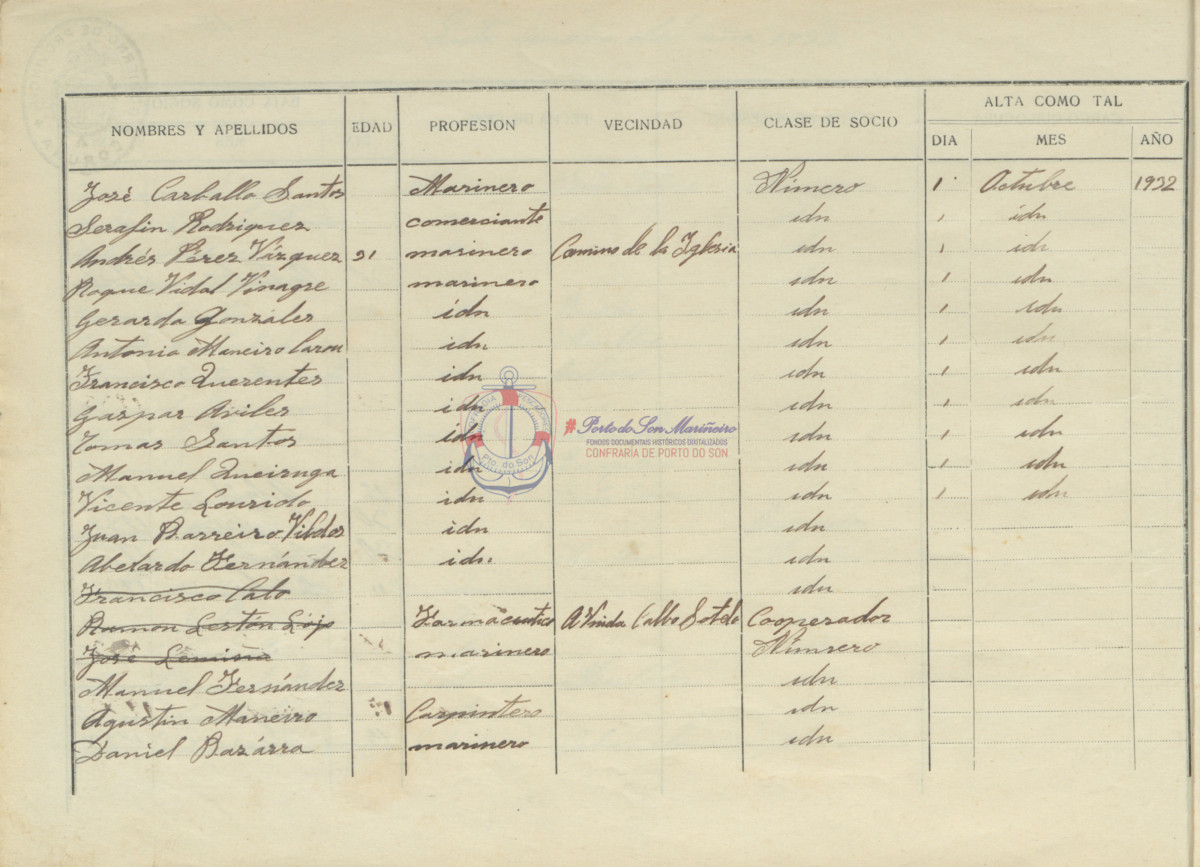 NOMBRES Y APELLIDOS EDAD PROFESION VECINDAD CLASE DE SOCIO ALTA COMO TAL
DIA MES AÑO
José Carballo Santos Marinero Número 1 Octubre 1932
Serafin Rodriguez comerciante idn 1 idn
Andrés Pérez Vázquez 21 marinero Camino de la Iglesia idn 1 idn
Roque Vidal Vinagre marinero idn 1 idn
Gerardo Gonzales idn idn 1 idn
Antonio Maneiro Carou idn idn 1 idn
Francisco Querentes idn idn 1 idn
Gaspar Aviles idn idn 1 idn
Tomas Santos idn idn 1 idn
Manuel Queiruga idn idn 1 idn
Vicente Lourido idn idn 1 idn
Juan Barreiro idn idn
Abelardo Fernández idn idn
Francisco Cato idn
Ramon Lestón Lojo Farmaceutico Calbo Sotelo Cooperador
José marinero Número
Manuel Fernández idn
Agustin Maneiro Carpintero idn
Daniel Bazárra marinero idn
#Porto do Son Mariñeiro
FONDOS DOCUMENTAIS HISTÓRICOS DIXITALIZADOS
CONFRARÍA DE PORTO DO SON
Pto. do Son